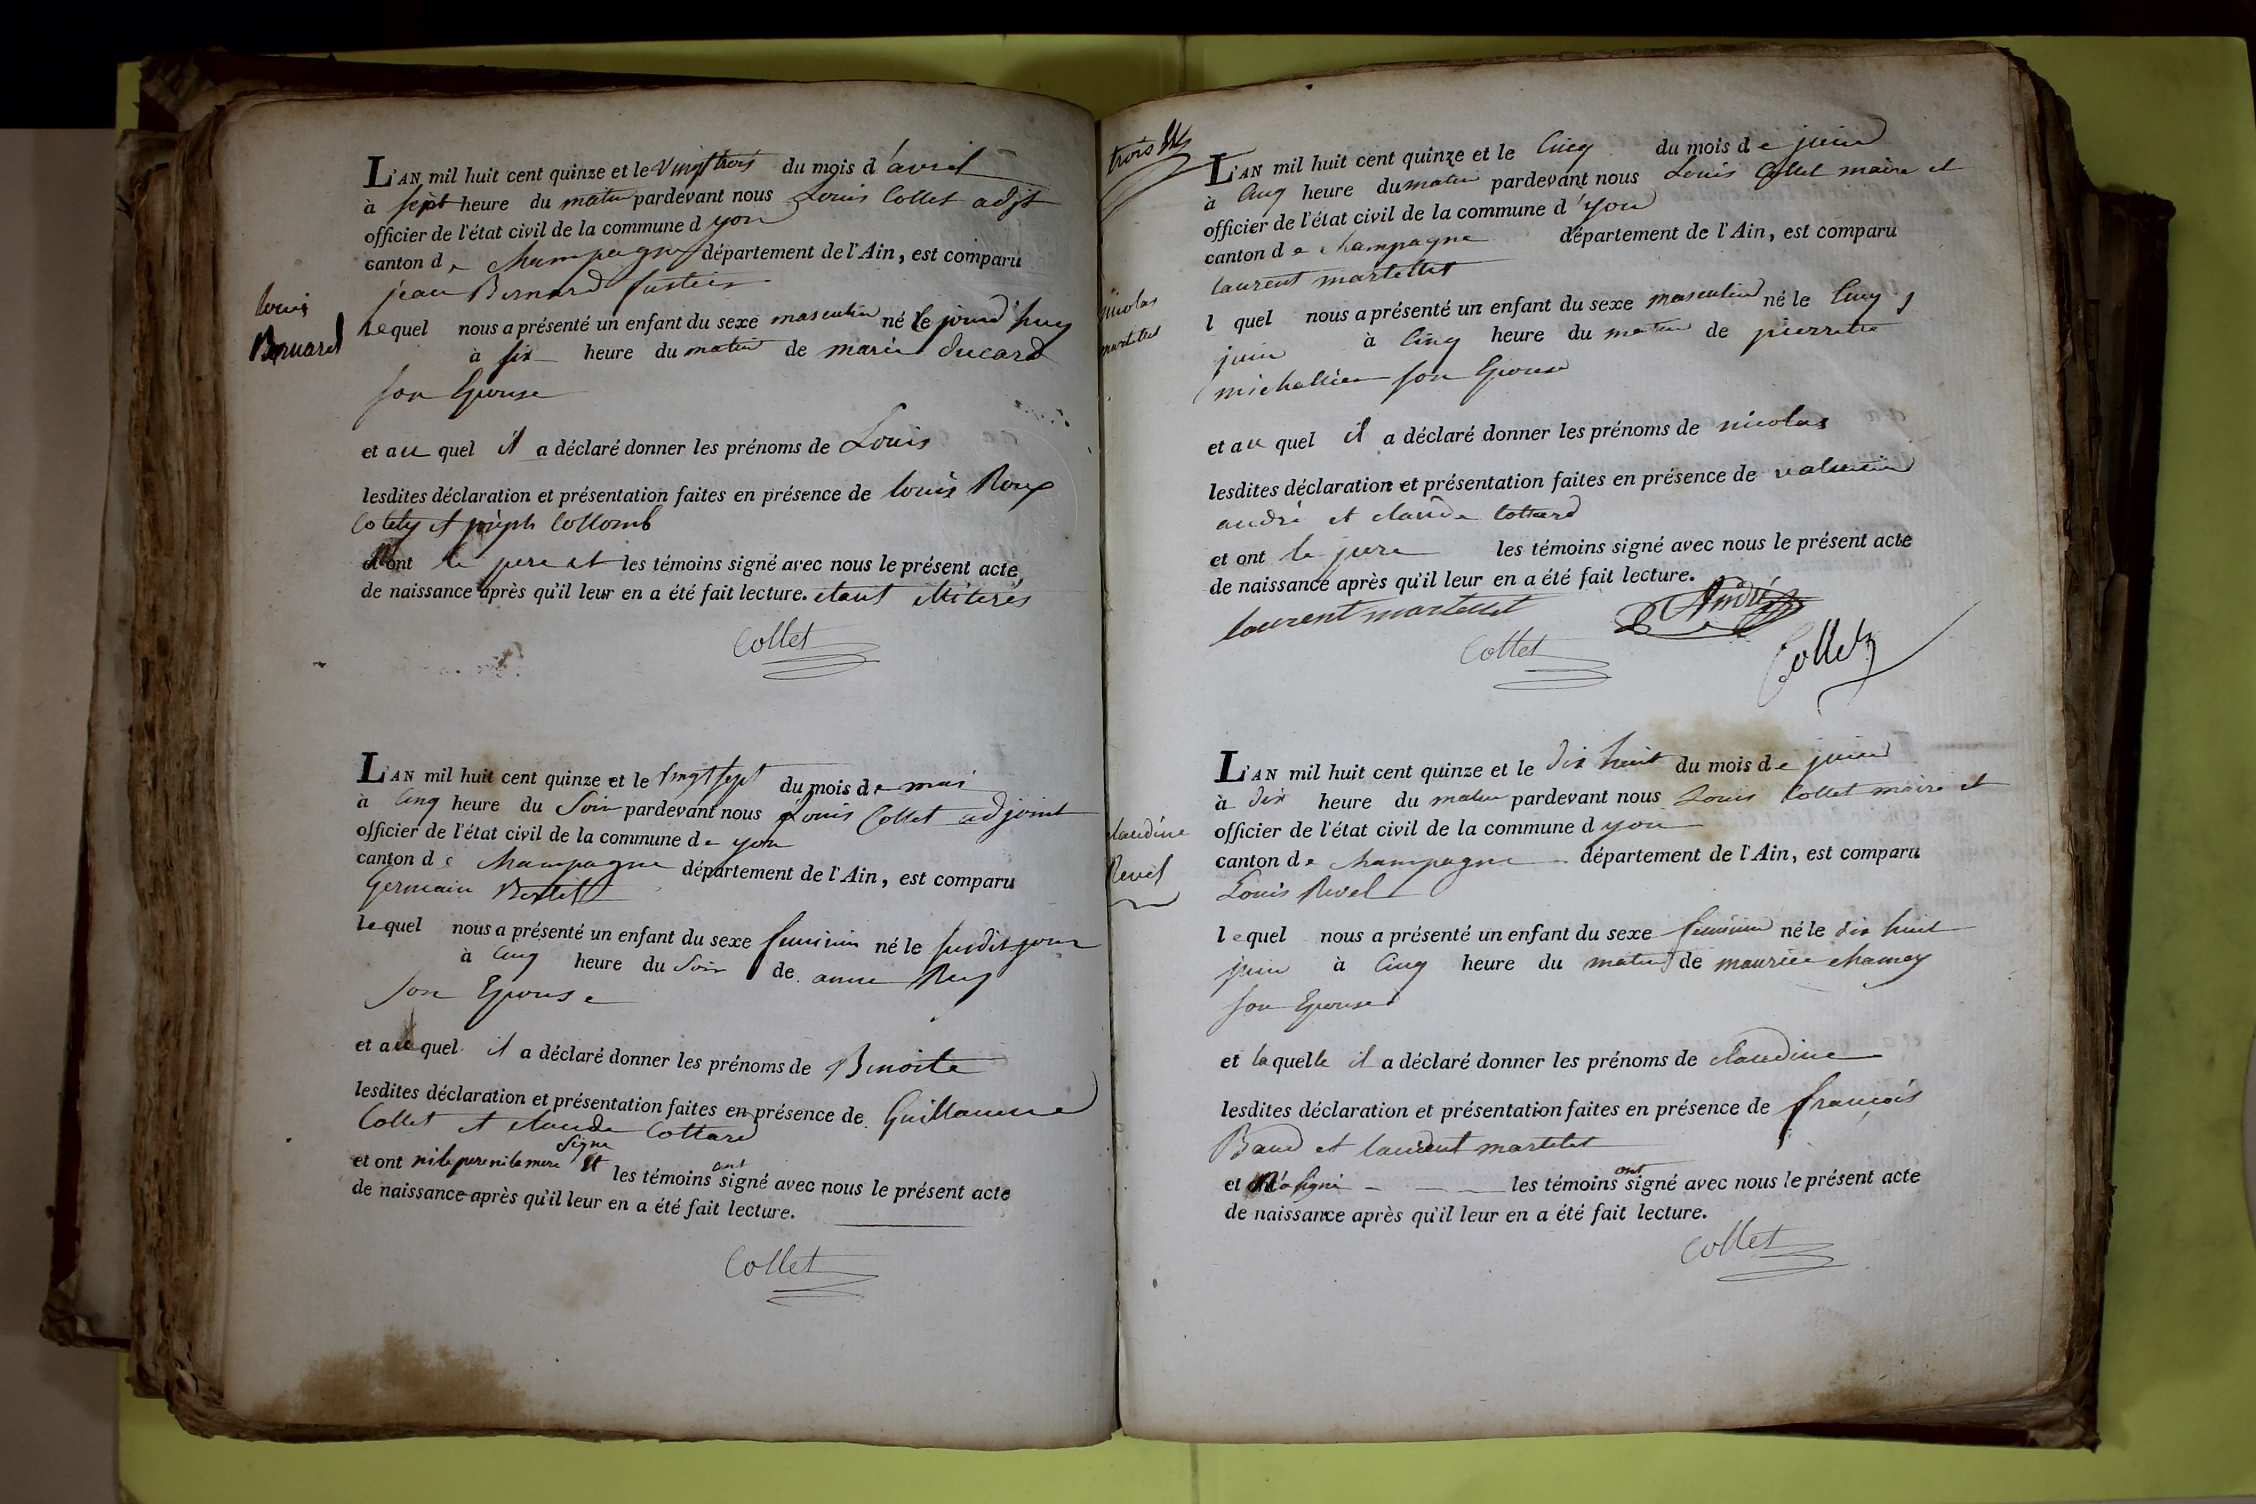 L'AN mil huit cent quinze et le vingt trois du mois d'avril
à sept heure du matin pardevant nous Louis Collet adjt
officier de l'état civil de la commune d yon
canton de champagne département de l'Ain, est comparu
jean Bernard
Louis
Bernard
lequel nous a présenté un enfant du sexe masculin né le jourd'huy
à six heure du matin de marie ducard
son Epouse
et au quel il a déclaré donner les prénoms de Louis
lesdites déclaration et présentation faites en présence de louis Roux
et joseph Collomb
et ont le pere et les témoins signé avec nous le présent acte
de naissance après qu'il leur en a été fait lecture. etant illiterés
Collet
L'AN mil huit cent quinze et le vingt sept du mois de mai
à cinq heure du soir pardevant nous Louis Collet adjoint
officier de l'état civil de la commune de yon
canton de champagne département de l'Ain, est comparu
Germain
lequel nous a présenté un enfant du sexe feminin né le susdit jour
à cinq heure du soir de anne Rey
son Epouse
et au quel il a déclaré donner les prénoms de Benoite
lesdites déclaration et présentation faites en présence de Guillaume
Collet et claude Cottard
signé
et ont ni le pere ni la mere et les témoins ont signé avec nous le présent acte
de naissance après qu'il leur en a été fait lecture.
Collet
trois
L'AN mil huit cent quinze et le cinq du mois de juin
à cinq heure du matin pardevant nous Louis Collet maire et
officier de l'état civil de la commune d'yon
canton de champagne département de l'Ain, est comparu
laurent martellet
nicolas
martelet
l quel nous a présenté un enfant du sexe masculin né le cinq
juin à cinq heure du matin de pierrette
michallier son Epouse
et au quel il a déclaré donner les prénoms de nicolas
lesdites déclaration et présentation faites en présence de valentin
andré et claude Cottard
et ont le pere les témoins signé avec nous le présent acte
de naissance après qu'il leur en a été fait lecture.
laurent martellet André
Collet Collet
L'AN mil huit cent quinze et le dix huit du mois de juin
à dix heure du matin pardevant nous Louis Collet maire et
officier de l'état civil de la commune d yon
canton de champagne département de l'Ain, est comparu
Louis Revel
claudine
Revel
lequel nous a présenté un enfant du sexe feminin né le dix huit
juin à cinq heure du matin de mauricie chamey
son Epouse
et laquelle il a déclaré donner les prénoms de claudine
lesdites déclaration et présentation faites en présence de françois
Baud et laurent martelet
et n'a signé les témoins ont signé avec nous le présent acte
de naissance après qu'il leur en a été fait lecture.
Collet